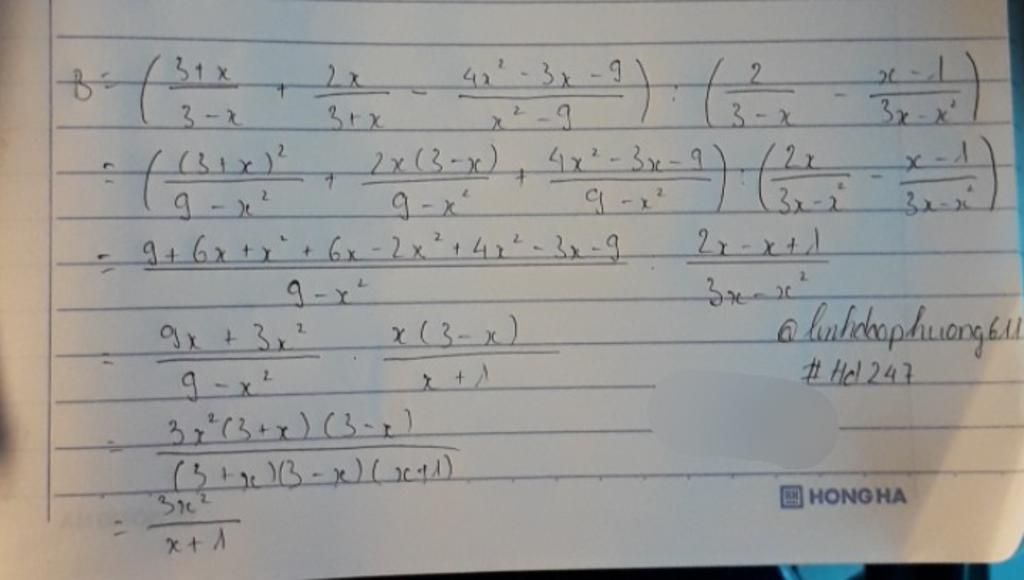 B = ( (3+x)/(3-x) + 2x/(3+x) - (4x² - 3x - 9)/(x² - 9) ) : ( 2/(3-x) - (x-1)/(3x-x²) )
= ( (3+x)²/(9-x²) + 2x(3-x)/(9-x²) + (4x² - 3x - 9)/(9-x²) ) : ( 2x/(3x-x²) - (x-1)/(3x-x²) )
= (9 + 6x + x² + 6x - 2x² + 4x² - 3x - 9)/(9-x²) : (2x - x + 1)/(3x-x²)
= (9x + 3x²)/(9-x²) . x(3-x)/(x+1)
@linhdaophuong611
#Hd247
= 3x²(3+x)(3-x)/((3+x)(3-x)(x+1))
= 3x²/(x+1)
HH HONG HA